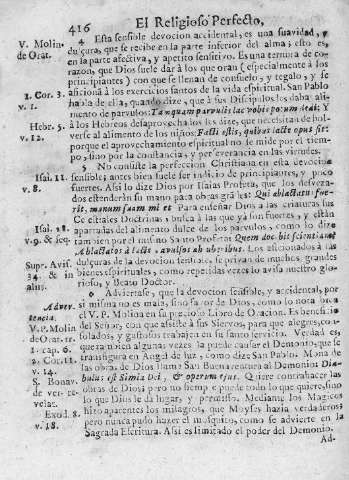 416 El Religioso Perfecto,
V. Molin. de Orat.
4 Esta sensible devocion accidental, es una suavidad, y
dulçura, que se recibe en la parte inferior del alma; esto es,
en la parte afectiva, y apetito sensitivo. Es una ternura de co-
razon, que Dios suele dàr à los que oran (especialmente à los
principiantes) con que se llenan de consuelo, y regalo, y se
aficiona à los exercicios santos de la vida espiritual. San Pablo
1. Cor. 3. v. 1.
habla de ella, quando dize, que à sus Discipulos les daba ali-
mento de parvulos: Tamquam parvulis lac vobis potum dedi: Y
Hebr. 5. v. 12.
à los Hebreos desaprovecha los les dize, que necessitan de bol-
verse al alimento de los niños: Facti estis, quibus lacte opus sit:
porque el aprovechamiento espiritual no se mide por el tiem-
po, sino por la constancia, y perseverancia en las virtudes.
5 No consiste la perfeccion Christiana en esta devocion
Isai. 11. v. 8.
sensible, antes bien suele ser indicio de principiantes, y poco
fuertes. Assi lo dize Dios por Isaias Profeta, que los desteta-
dos estenderàn su mano para obras grandes: Qui ablactatus fue-
rit, manum suam mittet. Para enseñar Dios à las criaturas sus
Celestiales Doctrinas, busca à las que yà son fuertes, y estàn
Isai. 28. v. 9. & seq.
apartadas del alimento dulce de los parvulos, como lo dize
tambien por el mismo Santo Profeta: Quem docebit scientiam?
Ablactatos à lacte, avulsos ab uberibus. Los aficionados à las
Supr. Avis. 34. & in alijs.
dulçuras de la devocion sensible, se privan de muchos, grandes
bienes espirituales, como repetidas vezes lo avisa nuestro glo-
rioso, y Beato Doctor.
6 Adviertase, que la devocion sensible, y accidental, por
Advertencia.
si misma no es mala, sino favor de Dios, como lo nota bien
V. P. Molin. de Orat. tr. 1. cap. 6.
el V. P. Molina en su precioso Libro de Oracion. Es beneficio
del Señor, con que assiste à sus Siervos, para que alegres, con-
solados, y gustosos trabajen en su santo servicio. Verdad es,
que tambien algunas vezes la puede causar el Demonio, que se
2. Cor. 11. v. 14.
transfigura en Angel de luz, como dize San Pablo. Mona de
S. Bonav. de ver. revelat.
las obras de Dios llama San Buenaventura al Demonio: Dia-
bolus est simia Dei, & operum ejus. Quiere contrahacer las
obras de Dios; pero no siempre puede todo lo que quiere, sino
lo que Dios le dà lugar, y permisso. Mediante los Magicos
Exod. 8. v. 18.
hizo aparentes los milagros, que Moyses hazia verdaderos;
pero nunca pudo hazer el mosquito, como se advierte en la
Sagrada Escritura. Assi es limitado el poder del Demonio.
Ad-